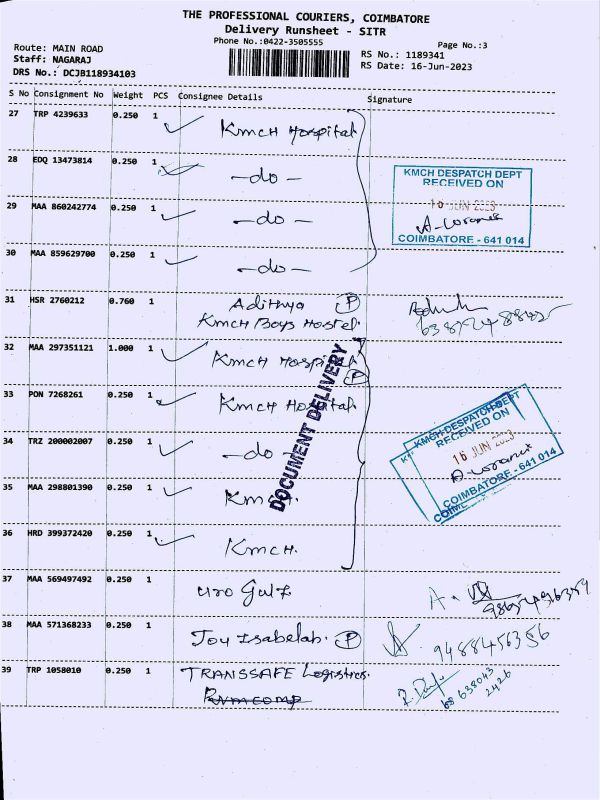 THE PROFESSIONAL COURIERS, COIMBATORE
Delivery Runsheet - SITR
Phone No.:0422-3505555
Page No.:3
Route: MAIN ROAD
Staff: NAGARAJ
DRS No.: DCJB118934103
RS No.: 1189341
RS Date: 16-Jun-2023
S No Consignment No Weight PCS Consignee Details Signature
27 TRP 4239633 0.250 1 KMCH Hospital
28 EDQ 13473814 0.250 1 -do-
29 MAA 860242774 0.250 1 -do-
30 MAA 859629700 0.250 1 -do-
KMCH DESPATCH DEPT
RECEIVED ON
16 JUN 2023
COIMBATORE - 641 014
31 HSR 2760212 0.760 1 Adithya P
KMCH Boys Hostel.
32 MAA 297351121 1.000 1 KMCH Hospital
P
33 PON 7268261 0.250 1 KMCH Hospital
34 TRZ 200002007 0.250 1 -do-
35 MAA 298801390 0.250 1 KMCH.
36 HRD 399372420 0.250 1 KMCH.
DOCUMENT DELIVERY
KMCH DESPATCH DEPT
RECEIVED ON
16 JUN 2023
COIMBATORE - 641 014
37 MAA 569497492 0.250 1
38 MAA 571368233 0.250 1 P 9488456356
39 TRP 1058010 0.250 1 TRANSSAFE Logistics.